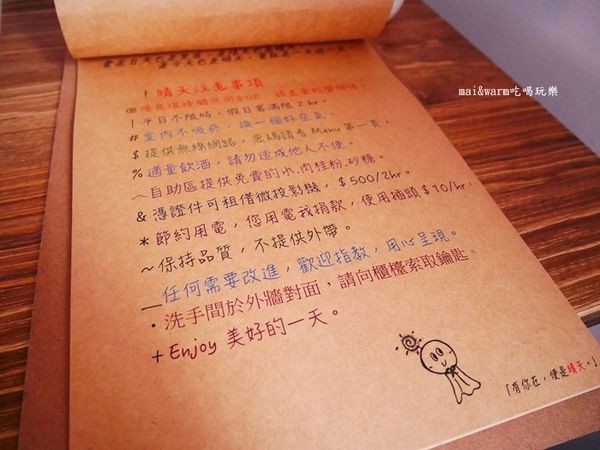 ! 晴天注意事項
| 平日不限時，假日客滿限2hr。
# 室內不吸菸，換一個好空氣。
$ 提供無線網路，密碼請看Menu第一頁。
% 適量飲酒，請勿造成他人不便。
︿自助區提供免費的水.肉桂粉.砂糖。
& 憑證件可租借微投影機，$500/2hr。
* 節約用電，您用電我捐款，使用插頭$10/hr。
~保持品質，不提供外帶。
_任何需要改進，歡迎指教，用心呈現。
·洗手間於外牆對面，請向櫃檯索取鑰匙。
+Enjoy 美好的一天。
「有你在，便是晴天。」
mai&warm吃喝玩樂